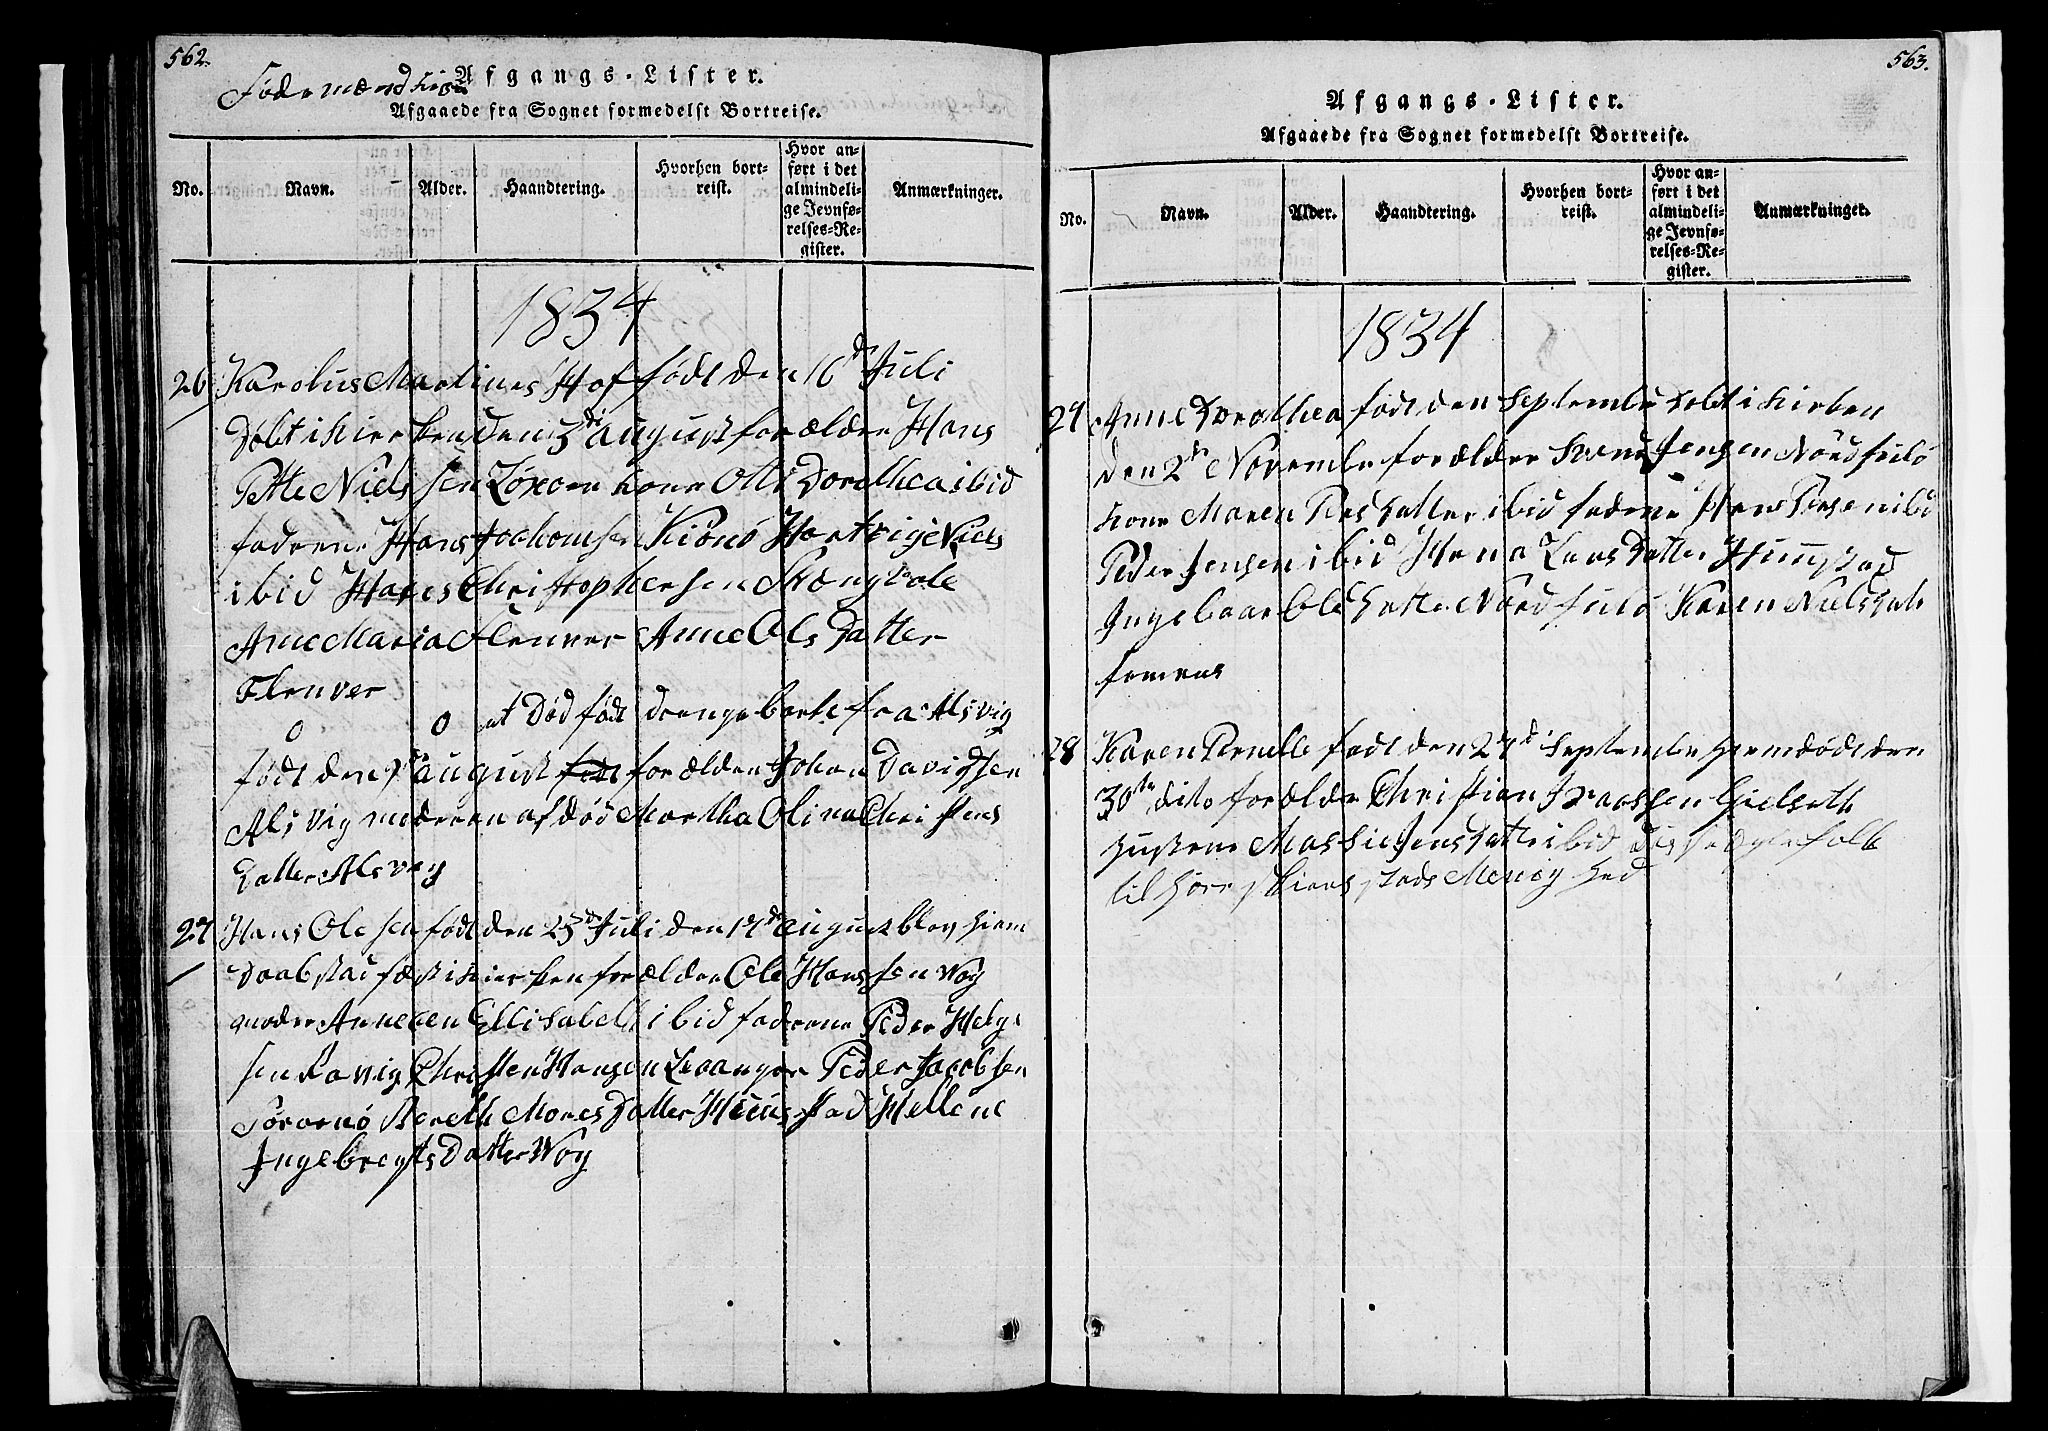 562.
Føde mandkiøn
Afgangs-Lister.
Afgaaede fra Sognet formedelst Bortreise.
No.
Navn.
Alder.
Haandtering.
Hvorhen bort-
reist.
Hvor an-
ført i det
almindeli-
ge Jevnfø-
relses-Re-
gister.
Anmærkninger.
1834
26 Karolus Martines Hof født den 16d Juli
døbt i Kierken den 3di august forældre Hans
Pette Nielssen kone Otte Dorethea ibid
fadrene Hans Jochomsen Kiønø Hartvig Niels
ibid Hans Christophersen
Anne Maria Flenver Anne Ols Datter
Flenver
0 0 et Død født drenge barn fra Alsvig
født den august født forældre Johan Davidsen
Alsvig moderen afdød Martha Olina Christens
Datter Alsvig
27 Hans Olesen født den 23de Juli den 17de august blev hiem
døbt stadfæst i Kierken forældre Ole Hanssen Vog
moder Anne Ellisabeth ibid faderene Peder Helge
sen Christen Hansen Levanger Peder Jacobsen
Bereth Mons Datter Hustad Hellene
Ingebregts Datter Vog
563.
Afgangs-Lister.
Afgaaede fra Sognet formedelst Bortreise.
No.
Navn.
Alder.
Haandtering.
Hvorhen bort-
reist.
Hvor an-
ført i det
almindeli-
ge Jevnfø-
relses-Re-
gister.
Anmærkninger.
1834
27 Anne Dorothea født den September døbt i Kirken
den 2de November forældre Svend Jensen Nordfulø
kone Maren Pers datter ibid fadrene Hans Persen ibid
Peder Jensen ibid Hana Lars Datter
Ingebaar Ols Datter Nordfulø Karen Niels dat
28 Karen Pernelle født den 27d September hiemdøbt den
30te dito forældre Christian Isaassen Gielseth
Hustrue Massie Jens Datter ibid disse ægtefolk
til hører Meney hed